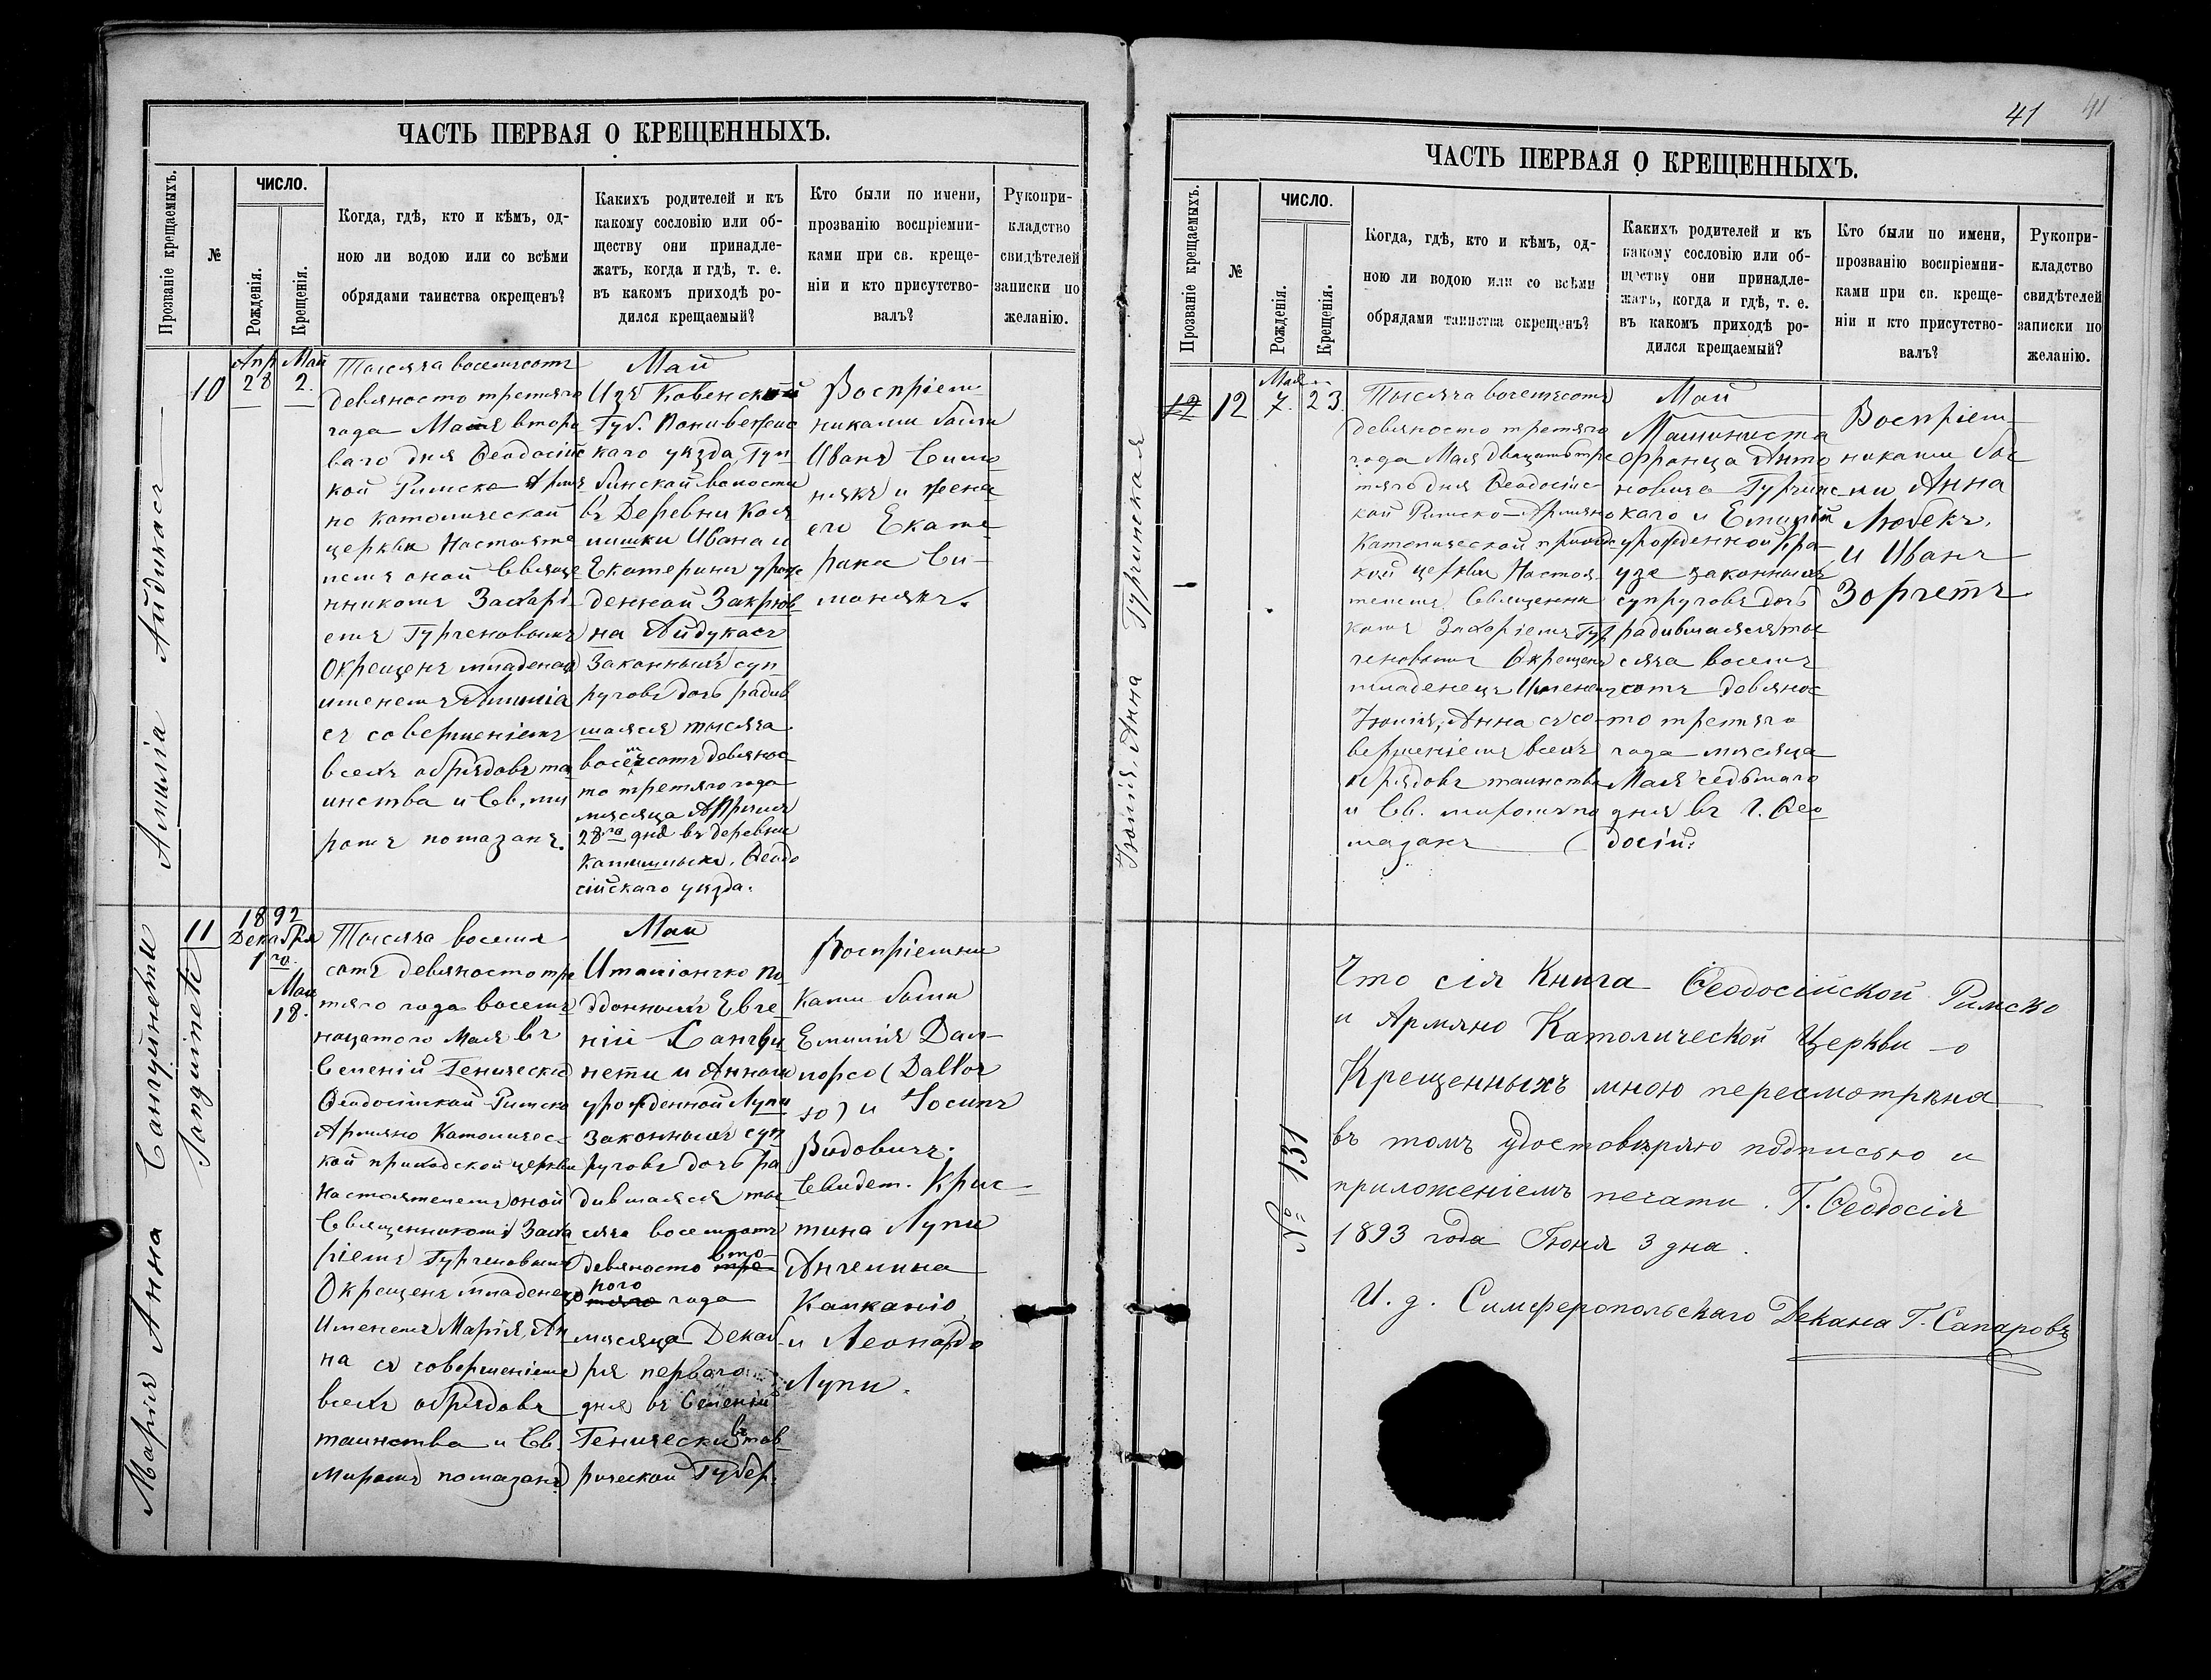 ЧАСТЬ ПЕРВАЯ О КРЕЩЕННЫХЪ.
Прозваніе крещаемыхъ.
№
ЧИСЛО.
Рожденія.
Крещенія.
Когда, гдѣ, кто и кѣмъ, од-
ною ли водою или со всѣми
обрядами таинства окрещенъ?
Какихъ родителей и къ
какому сословію или об-
ществу они принадле-
жатъ, когда и гдѣ, т. е.
въ какомъ приходѣ ро-
дился крещаемый?
Кто были по имени,
прозванію воспріемни-
ками при св. креще-
ніи и кто присутство-
валъ?
Рукопри-
кладство
свидѣтелей
записки по
желанію.
Амилія Айдукасъ
10
Апр
28
Май
2.
Тысяча восемьсотъ
девяносто третяго
года Мая втора
ваго дня Ѳеодосійс
кой Римско Армя
но католической
церкви Настояте
лемъ оной Священ
никомъ Захарі-
емъ Гургеновымъ
Окрещенъ младенецъ
именемъ Амилія
съ совершеніемъ
всехъ обрядовъ та
инства и Св. ми
ромъ помазанъ.
Май
Изъ Ковенской
Губ. Понивежс
каго уѣзда, Гуп
бинской волости
въ Деревни Кол
лишки Ивана и
Екатерины урож
денной Закрюв
на Айдукасъ
Законныхъ суп
руговъ дочь родив
шаяся тысяча
восемьсотъ девянос
то третяго года
мясяца Апрѣля
28го дня въ деревни
Ѳеодо
сійскаго уѣзда.
Воспріем-
никами были
Иванъ Симо
някъ и жена
его Екате
рина Си-
монякъ.
Марія Анна Сангуйнети
Sanguineti
11
1892
Декабря
1го.
Мая
18.
Тысяча восемь
сотъ девяносто тре
тяго года восемь
нацатого Мая въ
Селеній Геническъ
Ѳеодосійской Римско
Армяно Католичес-
кой приходской церкви
Настоятелемъ оной
Священникомъ Заха
ріемъ Гургеновымъ
Окрещенъ младенецъ
Именемъ Марія, Ан
на съ совершеніемъ
всехъ обрядовъ
таинства и Св.
Миромъ помазанъ
Май
Италіонско по
ддонныхъ Евге
ній Сангви
нети и Анной
урожденной Лупи
Законныхъ суп
руговъ дочь ро
дившаяся ты
сяча восемьсотъ
девяносто тре вто
тяго рого года
мясяца Декаб
ря перваго
дня въ Селеній
Генически въ тав
рической Губер.
Воспріемни
ками были
Емилія Дал-
лорсо (Dallor
so) и Іосипъ
Видовичъ.
Свидет. Крис-
тина Лупи
Ангелина
Калканіо
и Леонардо
Лупи.
41
41
ЧАСТЬ ПЕРВАЯ О КРЕЩЕННЫХЪ.
Прозваніе крещаемыхъ.
№
ЧИСЛО.
Рожденія.
Крещенія.
Когда, гдѣ, кто и кѣмъ, од-
ною ли водою или со всѣми
обрядами таинства окрещенъ?
Какихъ родителей и къ
какому сословію или об-
ществу они принадле-
жатъ, когда и гдѣ, т. е.
въ какомъ приходѣ ро-
дился крещаемый?
Кто были по имени,
прозванію воспріемни-
ками при св. креще-
ніи и кто присутство-
валъ?
Рукопри-
кладство
свидѣтелей
записки по
желанію.
Іюлія, Анна Гурчинская
12
12
Мая
7.
23.
Тысяча восемьсотъ
девяносто третяго
года Мая двацать тре
тяго дня Ѳеодосійс
кой Римско-Армяно
Католической приходс
кой церкви Настоя
телемъ Священни
комъ Захаріемъ Гур
геновымъ Окрещенъ
младенецъ Именемъ
Іюлія, Анна съ со-
вершеніемъ всехъ
обрядовъ таинства
и Св. миромъ по
мазанъ
Май
Машиниста
Франца Анто
новича Гурчинс
каго и Емилій
урожденной Кра-
узе законныхъ
супруговъ дочь
радившаяся ты
сяча восемь
сотъ девянос
то третяго
года мясяца
Мая седьмаго
дня въ Г. Ѳео
досій:
Воспріем-
никами бы
ли Анна
Любекъ,
и Иванъ
Зоргетъ
Что сія Книга Ѳеодосійской Римско
и Армяно Католической Церкви о
Крещенныхъ мною пересмотрѣна
въ томъ удостовѣряю подписью и
приложеніемъ печати. Г. Ѳеодосія
1893 года Іюня 3 дна.
№ 131
И. д. Симферопольскаго Декана Г. Сапаровъ